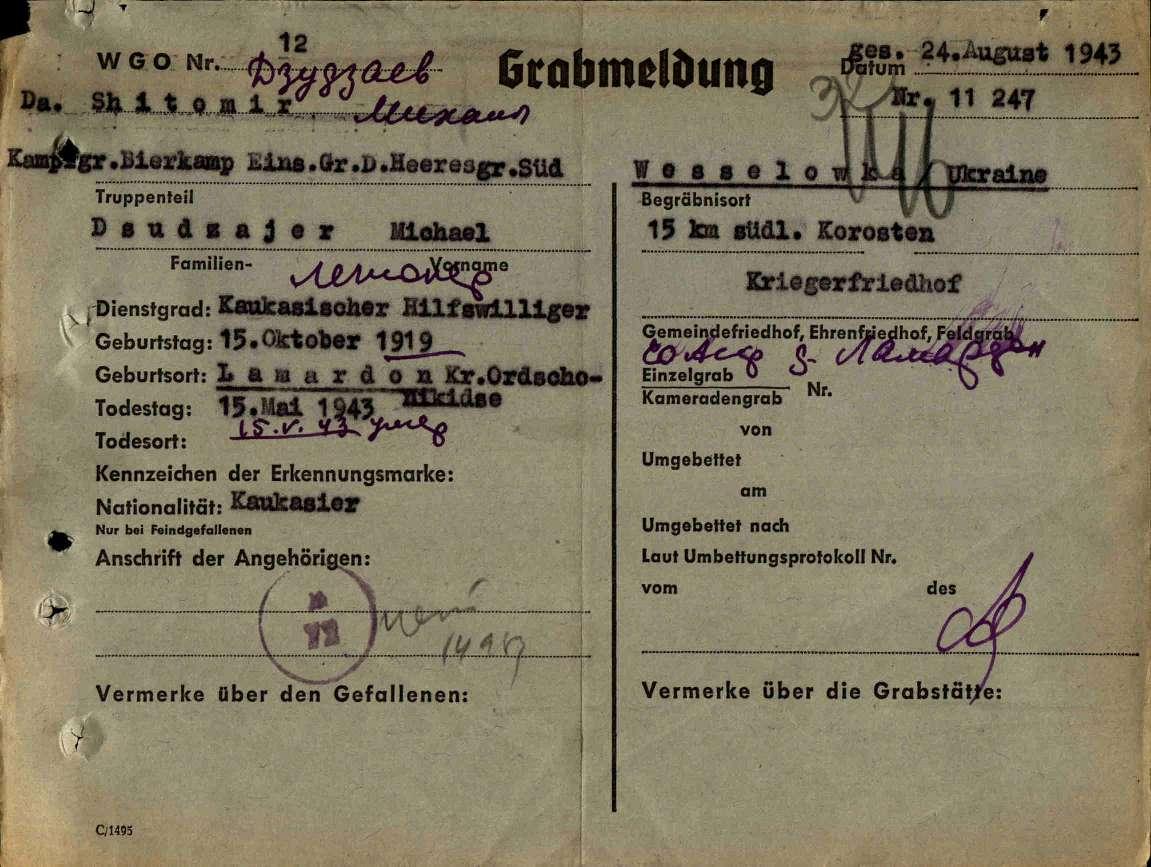 12
WGO Nr. Дзудзаев
Grabmeldung
ges. 24.August 1943
Datum
Da. Shitomir Михаил
Nr. 11 247
Kampfgr.Bierkamp Eins.Gr.D.Heeresgr.Süd
Truppenteil
Dsudzajer Michael
Familien- Vorname
Dienstgrad: Kaukasischer Hilfswilliger
Geburtstag: 15.Oktober 1919
Geburtsort: Lamardon Kr.Ordscho-
nikidse
Todestag: 15.Mai 1943
15.V.43 умер
Todesort:
Kennzeichen der Erkennungsmarke:
Nationalität: Kaukasier
Nur bei Feindgefallenen
Anschrift der Angehörigen:
Vermerke über den Gefallenen:
C/1495
Wesselowka / Ukraine
Begräbnisort
15 km südl. Korosten
Kriegerfriedhof
Gemeindefriedhof, Ehrenfriedhof, Feldgrab
Ламардон
Einzelgrab
Nr.
Kameradengrab
von
Umgebettet
am
Umgebettet nach
Laut Umbettungsprotokoll Nr.
vom des
Vermerke über die Grabstätte: